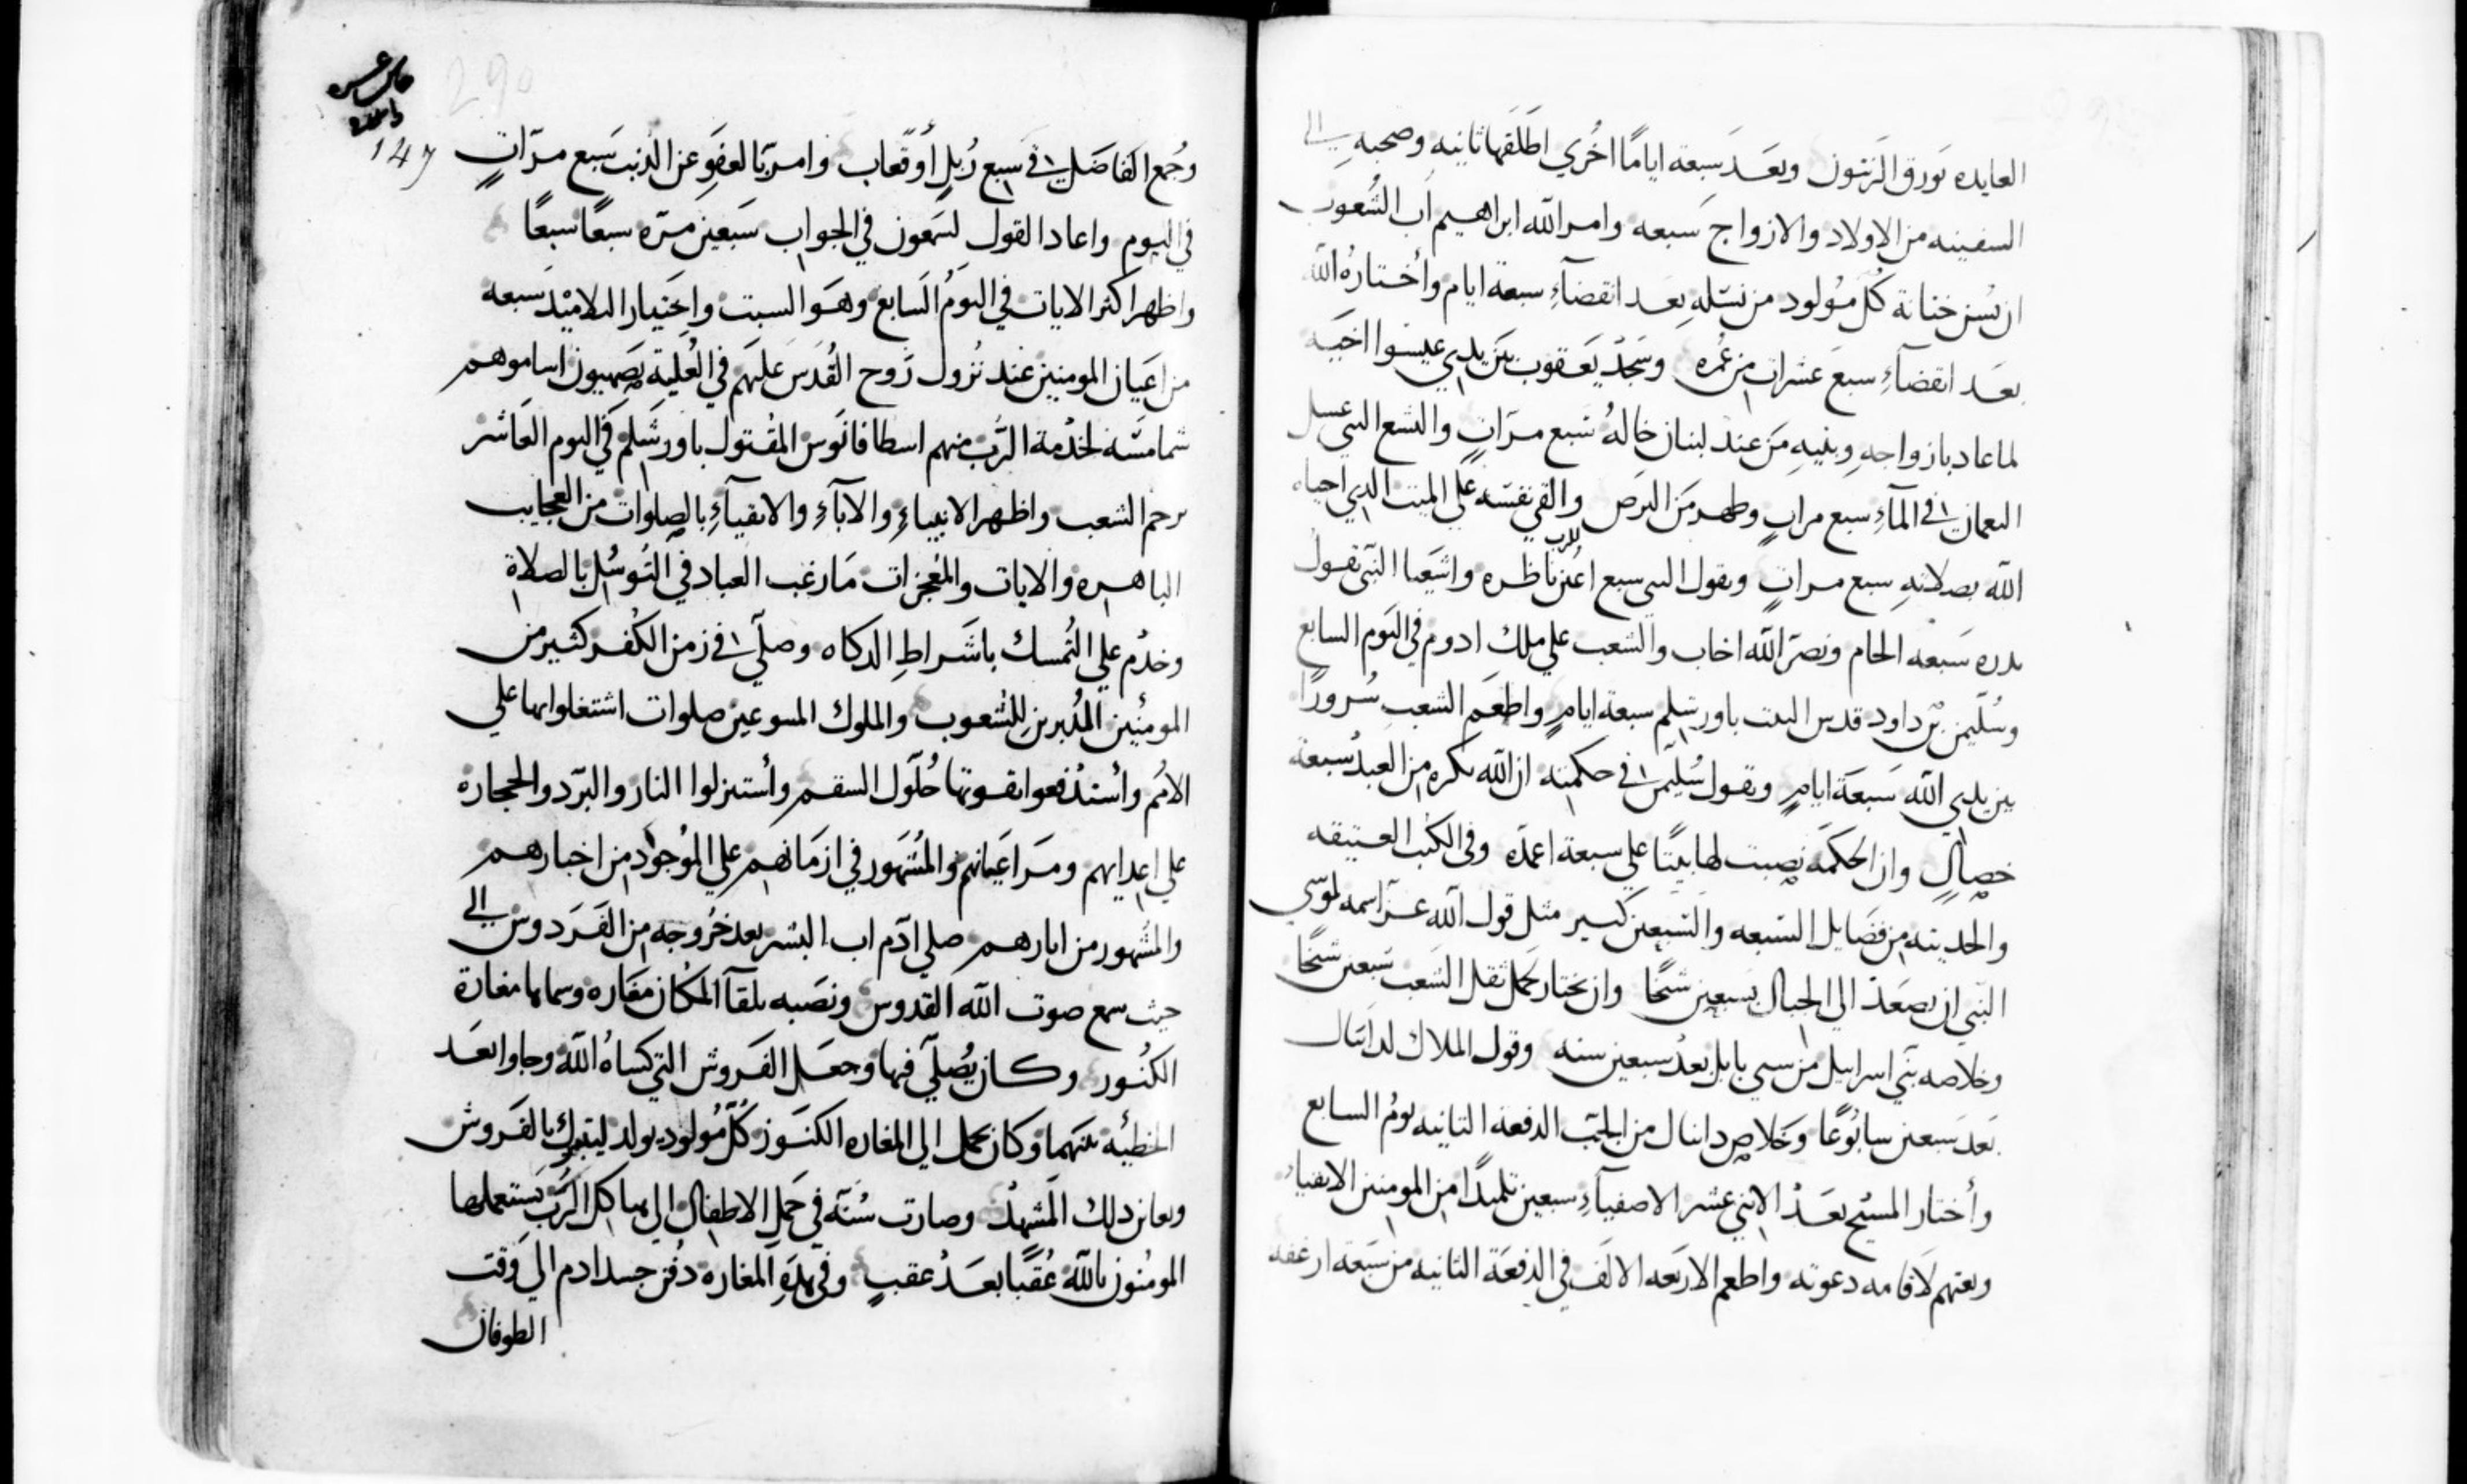 العايده بورق الزيتون وبعد سبعة اياما اخري اطلقها ثانيه وصحبه الي
السفينه من الاولاد والازواج سبعه وامر الله ابراهيم اب الشعوب
ان يسن ختانة كل مولود من نسله بعد انقضآء سبعة ايام وأختاره الله
بعد انقضآء سبع عشرات من عمره وسجد يعقوب بين يدي عيسوا اخيه
لما عاد بازواجه وبنيه من عند لبنان خاله سبع مرات واليسع النبي غسل
النعمان في المآء سبع مرات وطهر من البرص والقي نفسه علي الميت الدي احياه
الله بصلاته سبع مرات ويقول النبي سبع اعين للرب ناظره واشعيا النبي يقول
سبعه الحام ونصر الله اخاب والشعب علي ملك ادوم في اليوم السابع
وسليمن بن داود قدس البيت باورشلم سبعة ايام واطعم الشعب سرورا
بين يدي الله سبعة ايام ويقول سليمن في حكمته ان الله يكره من العبد سبعة
خصال وان الحكمه نصبت لها بيتا علي سبعة اعمده وفي الكتب العتيقه
والحديثه من فضايل السبعه والسبعين كثير مثل قول الله عز اسمه لموسي
النبي ان يصعد الي الجبال بسبعين شيخا وان يختار لحمل ثقل الشعب سبعين شيخا
وخلاصه بني اسراييل من سبي بابل بعد سبعين سنه وقول الملاك لدانيال
بعد سبعين سابوعا وخلاص دانيال من الجب الدفعة الثانيه يوم السابع
وأختار المسيح بعد الاثني عشر الاصفيآء سبعين تلميدا من المومنين الاتقياء
وبعثهم لاقامه دعوته واطعم الاربعه الالف في الدفعة الثانيه من سبعة ارغفه
290
147
وجمع الفاضل في سبع زبل أو قعاب وامر بالعفو عن الذنب سبع مرات
في اليوم واعاد القول لسمعون في الجواب سبعين مره سبعا سبعا
واظهر اكثر الايات في اليوم السابع وهو السبت واختيار التلاميد سبعه
من اعيان المومنين عند نزول روح القدس عليهم في العلية بصهيون اساموهم
شمامسة لخدمة الرب منهم اسطافانوس المقتول باورشلم في اليوم العاشر
برجم الشعب واظهر الانبياء والآباء والاتقيآء بالصلوات من العجايب
الباهره والايات والمعجزات ما رغب العباد في التوسل بالصلاة
وخدم علي التمسك باشراط الدكاه وصلي في زمن الكفر كثير من
المومنين المدبرين للشعوب والملوك صلوات اشتغلوا بها علي
الامم وأستدفعوا بقوتها حلول السقم وأستنزلوا النار والبرد والحجاره
علي اعدايهم ومر اعيانهم والمشهور في ازمانهم علي الموجود من اخبارهم
والمشهور من اثارهم صلي ادم اب البشر بعد خروجه من الفردوس الي
حيث سمع صوت الله القدوس ونصبه تلقآ المكان مغاره وسماها مغارة
الكنوز وكان يصلي فيها وجعل الفروش التي كساه الله وحاوا بعد
الخطيئه منهما وكان يحمل الي المغاره الكنوز كل مولود يولد ليتبرك بالفروش
ويعاين دلك المشهد وصارت سنة في حمل الاطفال الي هياكل الرب يستعملها
المومنون بالله عقبا بعد عقب وفي هذه المغاره دفن جسد ادم الي وقت
الطوفان